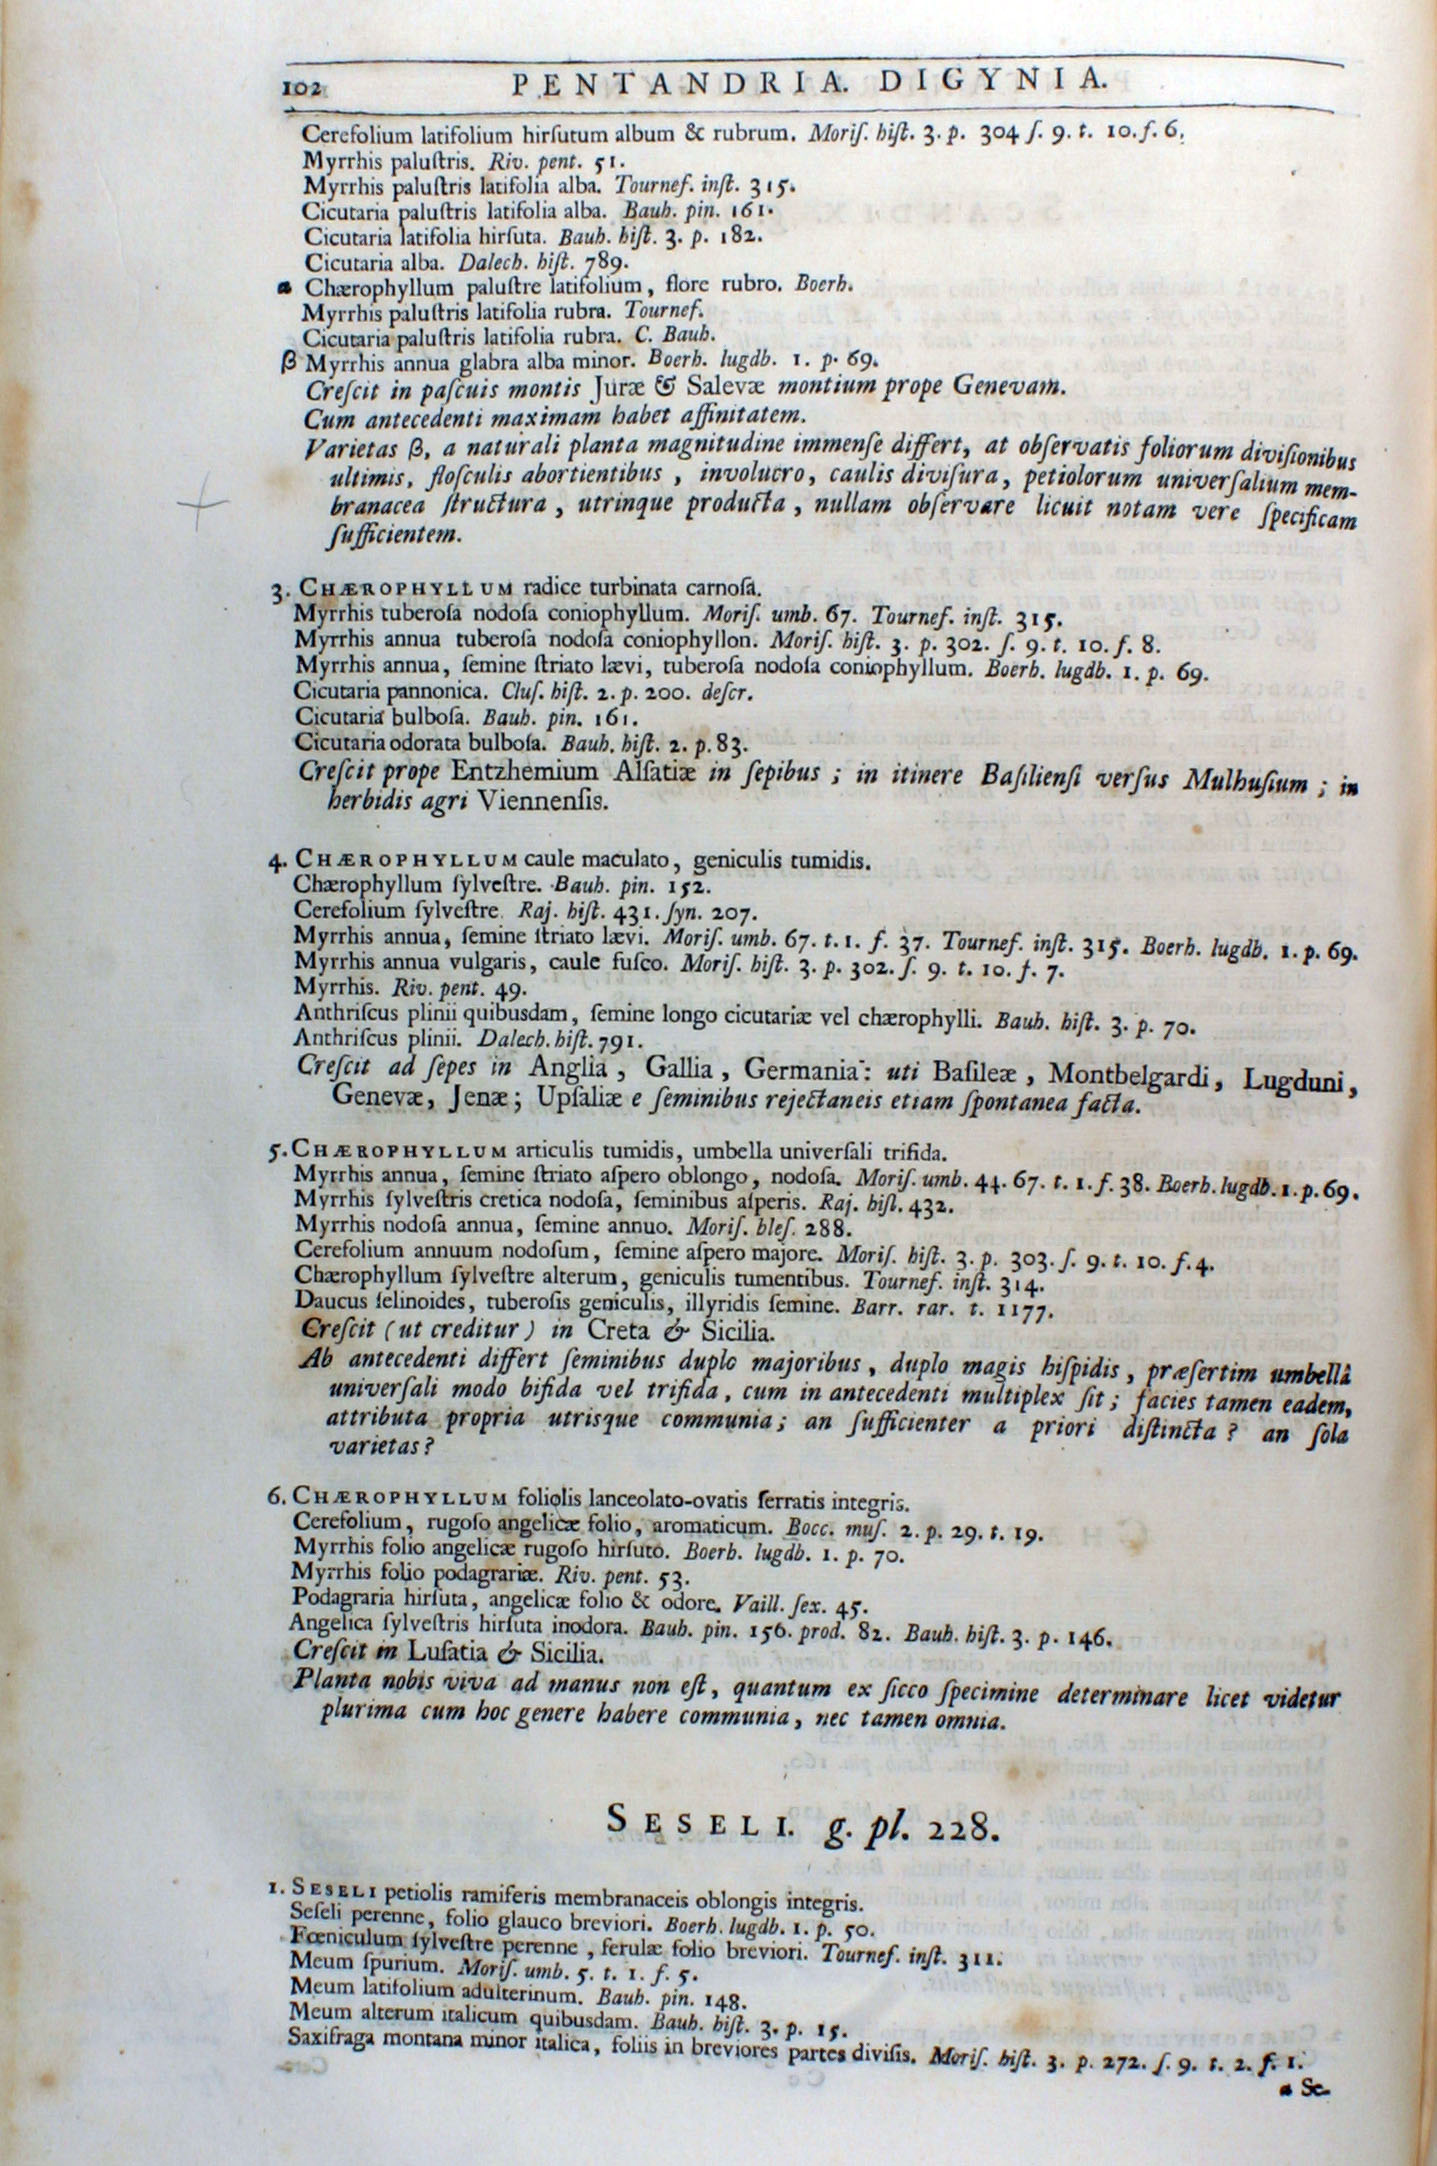 102 PENTANDRIA. DIGYNIA.
Cerefolium latifolium hirſutum album & rubrum. Moriſ. hiſt. 3. p. 304 ſ. 9. t. 10. f. 6.
Myrrhis paluſtris. Riv. pent. 51.
Myrrhis paluſtris latifolia alba. Tournef. inſt. 315.
Cicutaria paluſtris latifolia alba. Bauh. pin. 161.
Cicutaria latifolia hirſuta. Bauh. hiſt. 3. p. 182.
Cicutaria alba. Dalech. hiſt. 789.
a Chærophyllum paluſtre latifolium, flore rubro. Boerh.
Myrrhis paluſtris latifolia rubra. Tournef.
Cicutaria paluſtris latifolia rubra. C. Bauh.
β Myrrhis annua glabra alba minor. Boerh. lugdb. 1. p. 69.
Creſcit in paſcuis montis Juræ & Salevæ montium prope Genevam.
Cum antecedenti maximam habet affinitatem.
Varietas β, a naturali planta magnitudine immenſe differt, at obſervatis foliorum diviſionibus
ultimis, floſculis abortientibus, involucro, caulis diviſura, petiolorum univerſalium mem-
branacea ſtructura, utrinque producta, nullam obſervare licuit notam vere ſpecificam
ſufficientem.
3. CHÆROPHYLLUM radice turbinata carnoſa.
Myrrhis tuberoſa nodoſa coniophyllum. Moriſ. umb. 67. Tournef. inſt. 315.
Myrrhis annua tuberoſa nodoſa coniophyllon. Moriſ. hiſt. 3. p. 302. ſ. 9. t. 10. f. 8.
Myrrhis annua, ſemine ſtriato lævi, tuberoſa nodoſa coniophyllum. Boerh. lugdb. 1. p. 69.
Cicutaria pannonica. Cluſ. hiſt. 2. p. 200. deſcr.
Cicutaria bulboſa. Bauh. pin. 161.
Cicutaria odorata bulboſa. Bauh. hiſt. 2. p. 83.
Creſcit prope Entzhemium Alſatiæ in ſepibus; in itinere Baſilienſi verſus Mulhuſium; in
herbidis agri Viennenſis.
4. CHÆROPHYLLUM caule maculato, geniculis tumidis.
Chærophyllum ſylveſtre. Bauh. pin. 152.
Cerefolium ſylveſtre. Raj. hiſt. 431. ſyn. 207.
Myrrhis annua, ſemine ſtriato lævi. Moriſ. umb. 67. t. 1. f. 37. Tournef. inſt. 315. Boerh. lugdb. 1. p. 69.
Myrrhis annua vulgaris, caule fuſco. Moriſ. hiſt. 3. p. 302. ſ. 9. t. 10. f. 7.
Myrrhis. Riv. pent. 49.
Anthriſcus plinii quibusdam, ſemine longo cicutariæ vel chærophylli. Bauh. hiſt. 3. p. 70.
Anthriſcus plinii. Dalech. hiſt. 791.
Creſcit ad ſepes in Anglia, Gallia, Germania: uti Baſileæ, Montbelgardi, Lugduni,
Genevæ, Jenæ; Upſaliæ e ſeminibus rejectaneis etiam ſpontanea facta.
5. CHÆROPHYLLUM articulis tumidis, umbella univerſali trifida.
Myrrhis annua, ſemine ſtriato aſpero oblongo, nodoſa. Moriſ. umb. 44. 67. t. 1. f. 38. Boerh. lugdb. 1. p. 69.
Myrrhis ſylveſtris cretica nodoſa, ſeminibus aſperis. Raj. hiſt. 432.
Myrrhis nodoſa annua, ſemine annuo. Moriſ. bleſ. 288.
Cerefolium annuum nodoſum, ſemine aſpero majore. Moriſ. hiſt. 3. p. 303. ſ. 9. t. 10. f. 4.
Chærophyllum ſylveſtre alterum, geniculis tumentibus. Tournef. inſt. 314.
Daucus ſelinoides, tuberoſis geniculis, illyridis ſemine. Barr. rar. t. 1177.
Creſcit (ut creditur) in Creta & Sicilia.
Ab antecedenti differt ſeminibus duplo majoribus, duplo magis hiſpidis, præſertim umbellâ
univerſali modo bifida vel trifida, cum in antecedenti multiplex ſit; facies tamen eadem,
attributa propria utrisque communia; an ſufficienter a priori diſtincta? an ſola
varietas?
6. CHÆROPHYLLUM foliolis lanceolato-ovatis ſerratis integris.
Cerefolium, rugoſo angelicæ folio, aromaticum. Bocc. muſ. 2. p. 29. t. 19.
Myrrhis folio angelicæ rugoſo hirſuto. Boerh. lugdb. 1. p. 70.
Myrrhis folio podagrariæ. Riv. pent. 53.
Podagraria hirſuta, angelicæ folio & odore. Vaill. ſex. 45.
Angelica ſylveſtris hirſuta inodora. Bauh. pin. 156. prod. 82. Bauh. hiſt. 3. p. 146.
Creſcit in Luſatia & Sicilia.
Planta nobis viva ad manus non eſt, quantum ex ſicco ſpecimine determinare licet videtur
plurima cum hoc genere habere communia, nec tamen omnia.
SESELI. g. pl. 228.
1. SESELI petiolis ramiferis membranaceis oblongis integris.
Seſeli perenne, folio glauco breviori. Boerh. lugdb. 1. p. 50.
Fœniculum ſylveſtre perenne, ferulæ folio breviori. Tournef. inſt. 311.
Meum ſpurium. Moriſ. umb. 5. t. 1. f. 5.
Meum latifolium adulterinum. Bauh. pin. 148.
Meum alterum italicum quibusdam. Bauh. hiſt. 3. p. 15.
Saxifraga montana minor italica, foliis in breviores partes diviſis. Moriſ. hiſt. 3. p. 272. ſ. 9. t. 2. f. 1.
a Se-